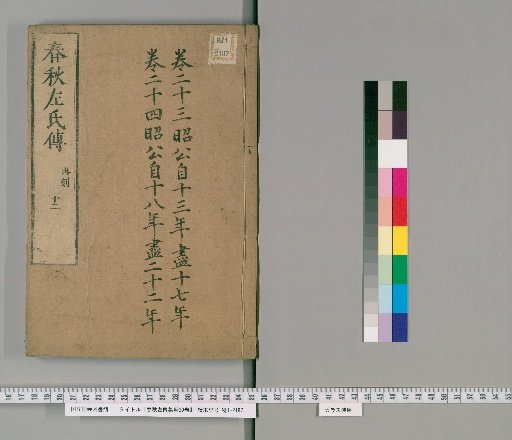 春秋左氏傳
再刻 十二
卷二十三昭公自十三年盡十七年
卷二十四昭公自十八年盡二十二年
ガラス使用